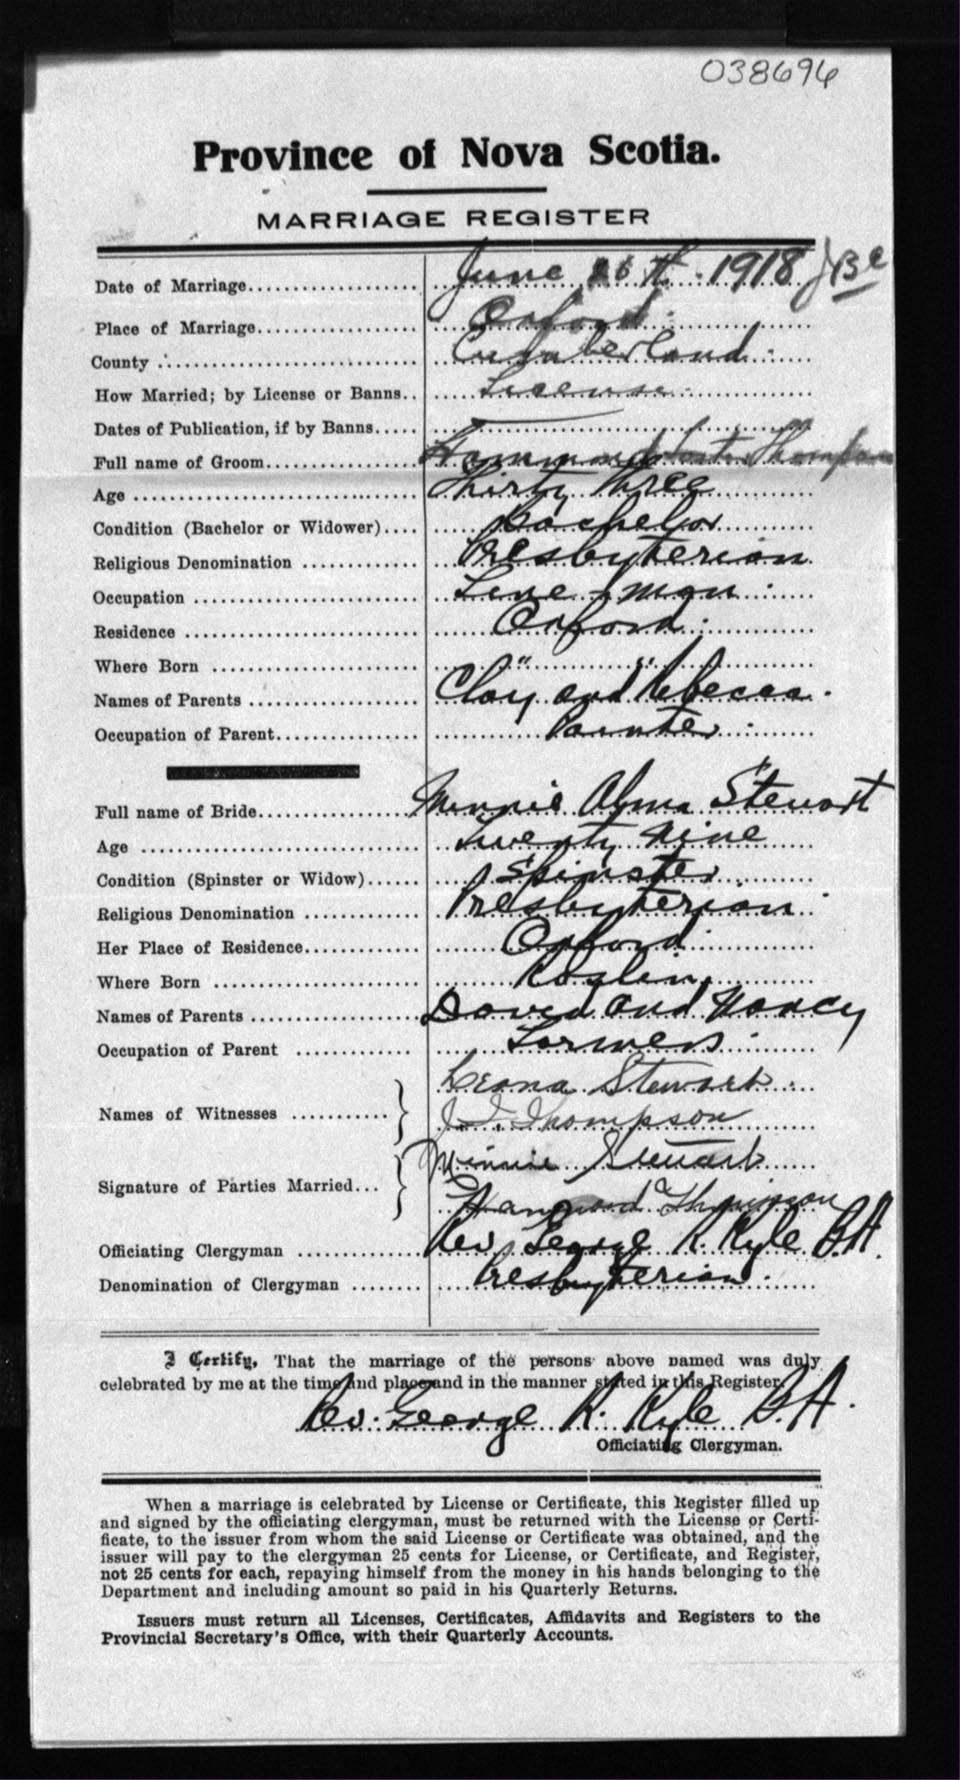 038696
Province of Nova Scotia.
MARRIAGE REGISTER
Date of Marriage.................... June 26th 1918
Place of Marriage................... Oxford
County .............................. Cumberland
How Married; by License or Banns.. License
Dates of Publication, if by Banns.....
Full name of Groom.................. Hammond Thompson
Age .................................. Thirty three
Condition (Bachelor or Widower).... Bachelor
Religious Denomination ............. Presbyterian
Occupation .......................... Line man
Residence ........................... Oxford
Where Born ......................... " "
Names of Parents ................... Clay and Rebecca
Occupation of Parent................ Painter
Full name of Bride.................. Minnie Alma Stewart
Age .................................. Twenty nine
Condition (Spinster or Widow)...... Spinster
Religious Denomination ............. Presbyterian
Her Place of Residence............. Oxford
Where Born ......................... Roslin
Names of Parents ................... David and Nancy
Occupation of Parent .............. Farmers
Leona Stewart
Names of Witnesses ...........} J. I. Thompson
Minnie Stewart
Signature of Parties Married...} Hammond Thompson
Officiating Clergyman .............. Rev George R. Kyle B.A.
Denomination of Clergyman ........ Presbyterian
I Certify, That the marriage of the persons above named was duly
celebrated by me at the time and place and in the manner stated in this Register.
Rev. George R. Kyle B.A.
Officiating Clergyman.
When a marriage is celebrated by License or Certificate, this Register filled up
and signed by the officiating clergyman, must be returned with the License or Certi-
ficate, to the issuer from whom the said License or Certificate was obtained, and the
issuer will pay to the clergyman 25 cents for License, or Certificate, and Register,
not 25 cents for each, repaying himself from the money in his hands belonging to the
Department and including amount so paid in his Quarterly Returns.
Issuers must return all Licenses, Certificates, Affidavits and Registers to the
Provincial Secretary's Office, with their Quarterly Accounts.